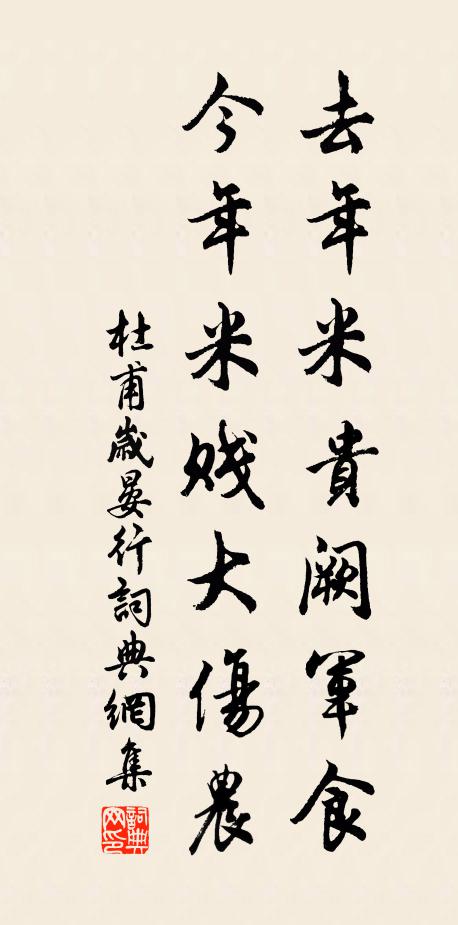 去年米貴闕軍食
今年米賤大傷農
杜甫歲晏行詞典網集
詞典網印